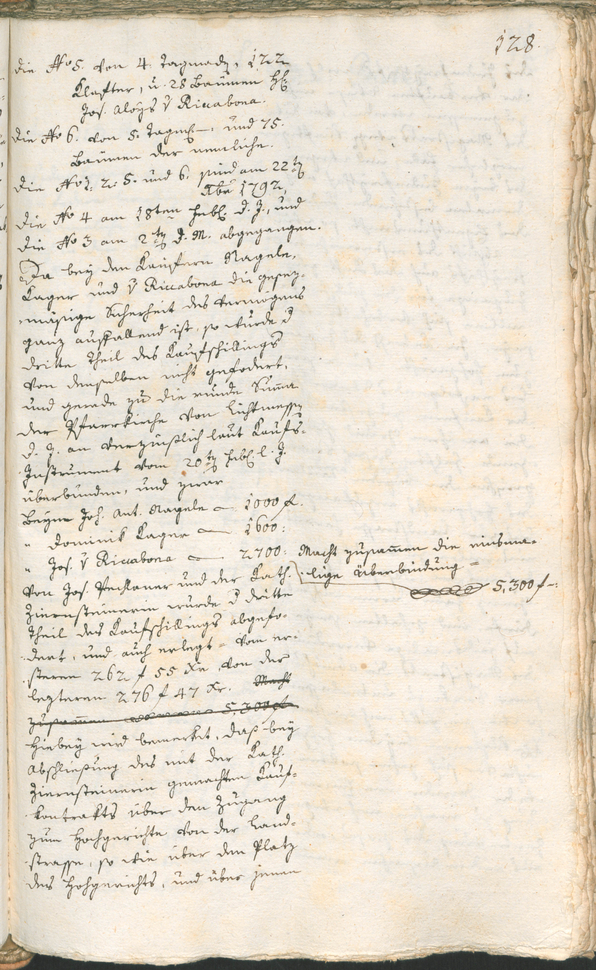 128.
Die No 5. von 4. Tagmad, 122
Klafter, u. 28 Bäumen H
Jos. Aloys v Riccabona.
Die No 6. von 5. Tagm, und 75.
Bäumen der nemliche.
Die No 1. 2. 5. und 6. sind am 22
Xbr 1792,
Die No 4 am 18ten d. J., und
Die No 3 am 2 d. M. abgegangen.
Da bey den Käufern Nagele,
Lager und v Riccabona die gesez-
mäsige Sicherheit des Vermögens
ganz auffallend ist, so wurde d
dritte Theil des Kaufschillings
von denselben nicht gefodert,
und gerade zu die runde Summa
der Pfarrkirche von Lichtmessen
d. J. an verzinslich laut Kaufs-
Instrument vom 20 l. J.
überbunden, und zwar
Beym Joh. Ant. Nagele — 1000 f.
" Dominik Lager — 1600:
" Jos. v Riccabona — 2700: Macht zusammen die einsma-
lige Überbindung
5,300 f-:
Von Jos. und der Kath.
Ziernsteinerin wurde d dritte
Theil des Kaufschillings abgefo-
dert, und auch erlegt - vom er-
steren 262 f 55 Xr. von der
lezteren 276 f 47 Xr. Macht
zusammen 5,300 f
Hiebey wird bemerket, daß bey
Abschließung des mit der Kath.
Ziernsteinerin gemachten Kauf-
kontrakts über den Zugang
zum Hochgerichte von der Land-
strasse, so wie über den Platz
des Hohgerichts, und über jenen